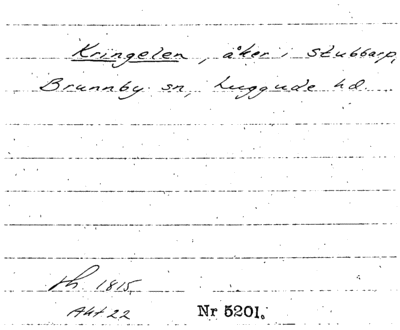 Kringelen, åker i Stubbarp,
Brunnby sn, Luggude hd.
th. 1815
Akt 22 Nr 5201.